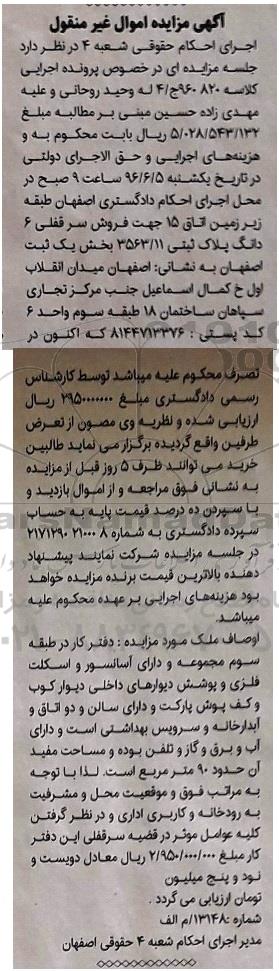 آگهی مزایده اموال غیر منقول
اجرای احکام حقوقی شعبه ۴ در نظر دارد
جلسه مزایده ای در خصوص پرونده اجرایی
کلاسه ۸۲۰ ۹۶۰ج/۴ له وحید روحانی و علیه
مهدی زاده حسین مبنی بر مطالبه مبلغ
۵/۰۲۸/۵۴۳/۱۳۲ ریال بابت محکوم به و
هزینه‌های اجرایی و حق الاجرای دولتی
در تاریخ یکشنبه ۹۶/۶/۵ ساعت ۹ صبح در
محل اجرای احکام دادگستری اصفهان طبقه
زیر زمین اتاق ۱۵ جهت فروش سر قفلی ۶
دانگ پلاک ثبتی ۳۵۶۳/۱۱ بخش یک ثبت
اصفهان به نشانی: اصفهان میدان انقلاب
اول خ کمال اسماعیل جنب مرکز تجاری
سپاهان ساختمان ۱۸ طبقه سوم واحد ۶
کد پستی : ۸۱۴۴۷۱۳۳۷۶ که اکنون در
تصرف محکوم علیه میباشد توسط کارشناس
رسمی دادگستری مبلغ ۲۹۵۰۰۰۰۰۰۰ ریال
ارزیابی شده و نظریه وی مصون از تعرض
طرفین واقع گردیده برگزار می نماید طالبین
خرید می توانند ظرف ۵ روز قبل از مزایده
به نشانی فوق مراجعه و از اموال بازدید و
با سپردن ده درصد قیمت پایه به حساب
سپرده دادگستری به شماره ۸ ۲۱۰۰۰ ۲۱۷۱۲۹۰
در جلسه مزایده شرکت نمایند پیشنهاد
دهنده بالاترین قیمت برنده مزایده خواهد
بود هزینه‌های اجرایی بر عهده محکوم علیه
میباشد.
اوصاف ملک مورد مزایده : دفتر کار در طبقه
سوم مجموعه و دارای آسانسور و اسکلت
فلزی و پوشش دیوارهای داخلی دیوار کوب
و کف پوش پارکت و دارای سالن و دو اتاق و
آبدارخانه و سرویس بهداشتی است و دارای
آب و برق و گاز و تلفن بوده و مساحت مفید
آن حدود ۹۰ متر مربع است. لذا با توجه
به مراتب فوق و موقعیت محل و مشرفیت
به رودخانه و کاربری اداری و در نظر گرفتن
کلیه عوامل موثر در قضیه سرقفلی این دفتر
کار مبلغ ۲/۹۵۰/۰۰۰/۰۰۰ ریال معادل دویست و
نود و پنج میلیون
تومان ارزیابی می گردد .
شماره :۱۳۱۴۸/م الف
مدیر اجرای احکام شعبه ۴ حقوقی اصفهان